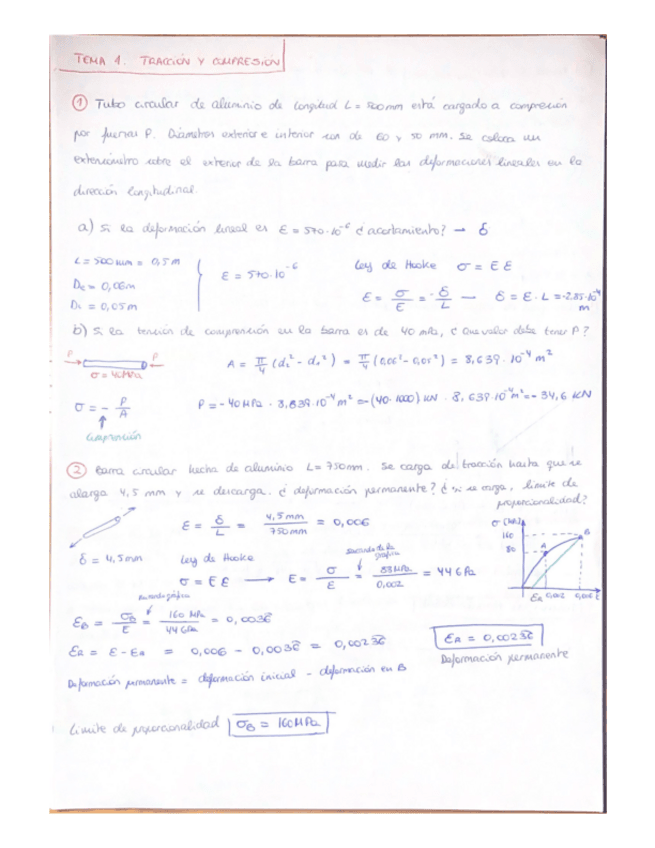 TEMA 1. TRACCIÓN Y COMPRESIÓN
① Tubo circular de aluminio de longitud L = 500mm está cargado a compresión
por fuerzas P. Diámetros exterior e interior son de 60 y 50 mm. Se coloca un
extensómetro sobre el exterior de la barra para medir las deformaciones lineales en la
dirección longitudinal.
a) Si la deformación lineal es ε = 570·10⁻⁶ ¿acortamiento? → δ
L = 500 mm = 0,5 m
De = 0,06m
Di = 0,05m
ε = 570·10⁻⁶
Ley de Hooke σ = E ε
ε = σ/E = - δ/L — δ = ε · L = -2,85·10⁻⁴ m
b) Si la tensión de comprensión en la barra es de 40 MPa, ¿que valor debe tener P?
P P
σ = 40MPa
A = π/4 (d₁² - d₂²) = π/4 (0,06² - 0,05²) = 8,639 · 10⁻⁴ m²
σ = - P/A
Comprensión
P = - 40 MPa · 8,639·10⁻⁴ m² = -(40·1000) kN · 8,639·10⁻⁴ m² = - 34,6 kN
② Barra circular hecha de aluminio L = 750mm. Se carga de tracción hasta que se
alarga 4,5 mm y se descarga. ¿deformación permanente? ¿si se carga, límite de
proporcionalidad?
δ = 4,5mm
ε = δ/L = 4,5mm/750mm = 0,006
Ley de Hooke
σ = E ε → E = σ/ε = 88MPa/0,002 = 44 GPa
Sacando de la gráfica
160
80
A
B
0,002 0,006 ε
εB = σB/E = 160 MPa/44 GPa = 0,0036
εR = ε - εA = 0,006 - 0,0036 = 0,00236
εR = 0,00236
Deformación permanente
Deformación permanente = deformación inicial - deformación en B
Límite de proporcionalidad σB = 160MPa